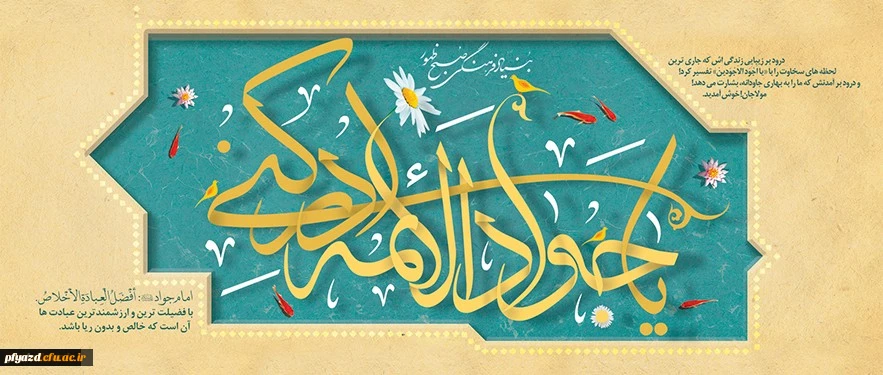 بنیاد فرهنگی صبح ظهور
درود بر زیبایی زندگی اش که جاری ترین
لحظه های سخاوت را با «یا اجود الاجودین» تفسیر کرد!
و درود بر آمدنش که ما را به بهاری جاودانه، بشارت می دهد!
مولا جان! خوش آمدید.
یا جواد الائمه ادرکنی
امام جواد : أفضَلُ العِبادَةِ الاَخْلاصُ.
با فضیلت ترین و ارزشمندترین عبادت ها
آن است که خالص و بدون ریا باشد.
pfyazd.cfu.ac.ir